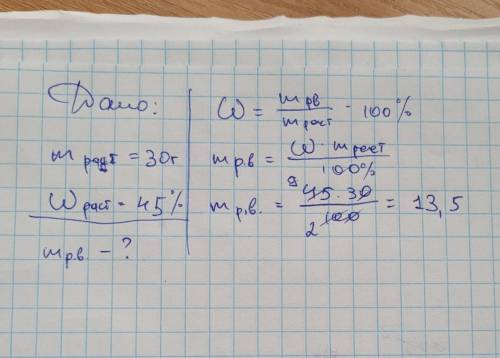 Дано:
m раст = 30г
ω раст = 45%
m р.в. - ?
ω = m рв / m раст · 100%
m р.в = ω · m раст / 100%
m р.в. = 9 45 · 30 / 2 100 = 13,5